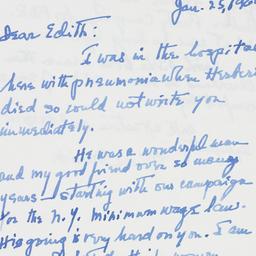 Jan. 25, 196
Dear Edith:
I was in the hospital
here with pneumonia when Herbert
died so could not write you
immediately.
He was a wonderful man
and my good friend over so many
years – starting with our campaign
for the N.Y. minimum wage laws.
His going is very hard on you. I am